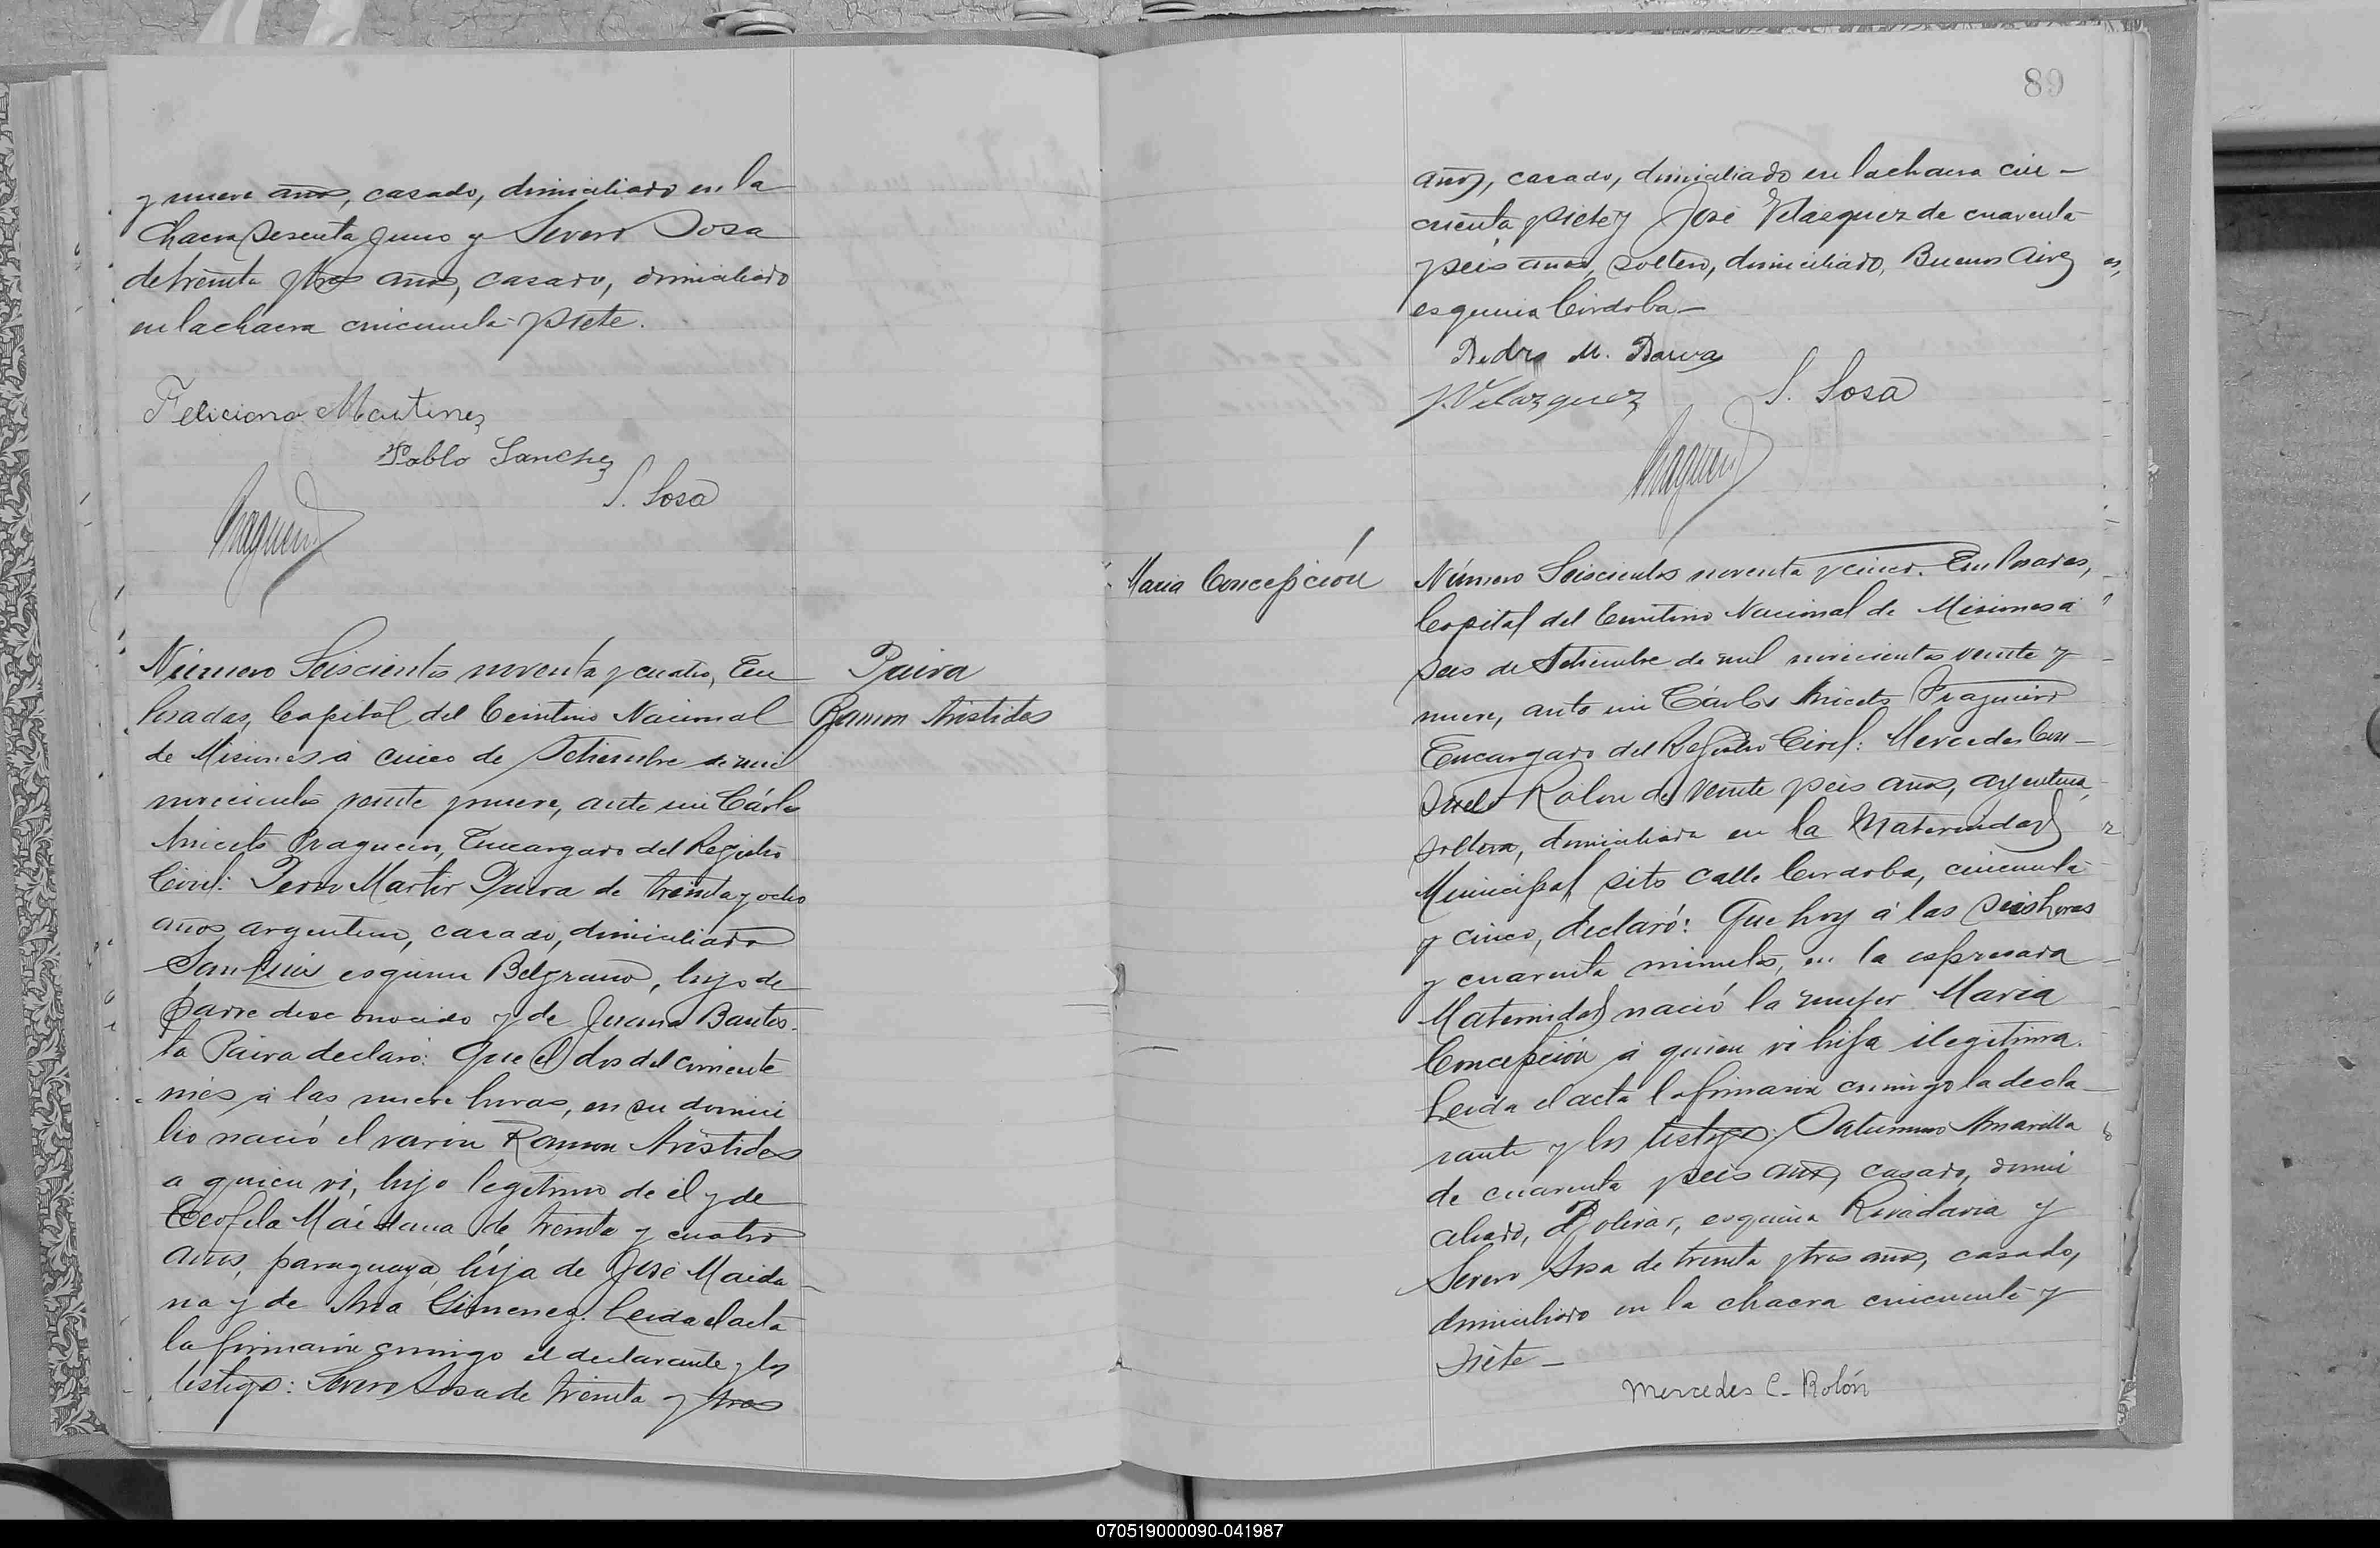 y nueve años, casado, domiciliado en la
chacra sesenta y uno y Severo Sosa
de treinta y tres años, casado, domiciliado
en la chacra cincuenta y siete.
Feliciano Martinez
Pablo Sanchez
S. Sosa
Número Seiscientos noventa y cuatro, En
Posadas, Capital del Territorio Nacional
de Misiones á cinco de Setiembre de mil
novecientos veinte y nueve, ante mi Cárlos
Aniceto Fragueiro, Encargado del Registro
Civil: Pedro Martir Paiva de treinta y ocho
años argentino, casado, domiciliado
San Luis esquina Belgrano, hijo de
padre desconocido y de Juana Bautis-
ta Paiva declaró: Que el dos del corriente
mes á las nueve horas, en su domici
lio nació el varon Ramon Aristides
a quien vi, hijo legitimo de él y de
Teofila Maidana de treinta y cuatro
años, paraguaya, hija de José Maida-
na y de Ana Gimenez. Leida el acta
la firmaron conmigo el declarante y los
testigos: Severo Sosa de treinta y tres
Paiva
Ramon Aristides
89
años, casado, domiciliado en la chacra cin-
cuenta y siete y José Velazquez de cuarenta
y seis años, soltero, domiciliado, Buenos Aires
esquina Córdoba-
Pedro M. Paiva
J. Velazquez
S. Sosa
Maria Concepción
Número Seiscientos noventa y cinco. En Posadas,
Capital del Territorio Nacional de Misiones á
seis de Setiembre de mil novecientos veinte y
nueve, ante mi Cárlos Aniceto Fragueiro
Encargado del Registro Civil: Mercedes Con-
suelo Rolon de veinte y seis años, argentina,
soltera, domiciliada en la Maternidad
Municipal sito calle Cordoba, cincuenta
y cinco, declaró: Que hoy á las seis horas
y cuarenta minutos, en la espresada
Maternidad nació la mujer Maria
Concepción á quien vi hija ilegitima.
Leida el acta la firmaron conmigo la decla-
rante y los testigos: Saturnino Amarilla
de cuarenta y seis años, casado, domi
ciliado, Bolivar, esquina Rivadavia y
Severo Sosa de treinta y tres años, casado,
domiciliado en la chacra cincuenta y
siete-
Mercedes C- Rolón
070519000090-041987